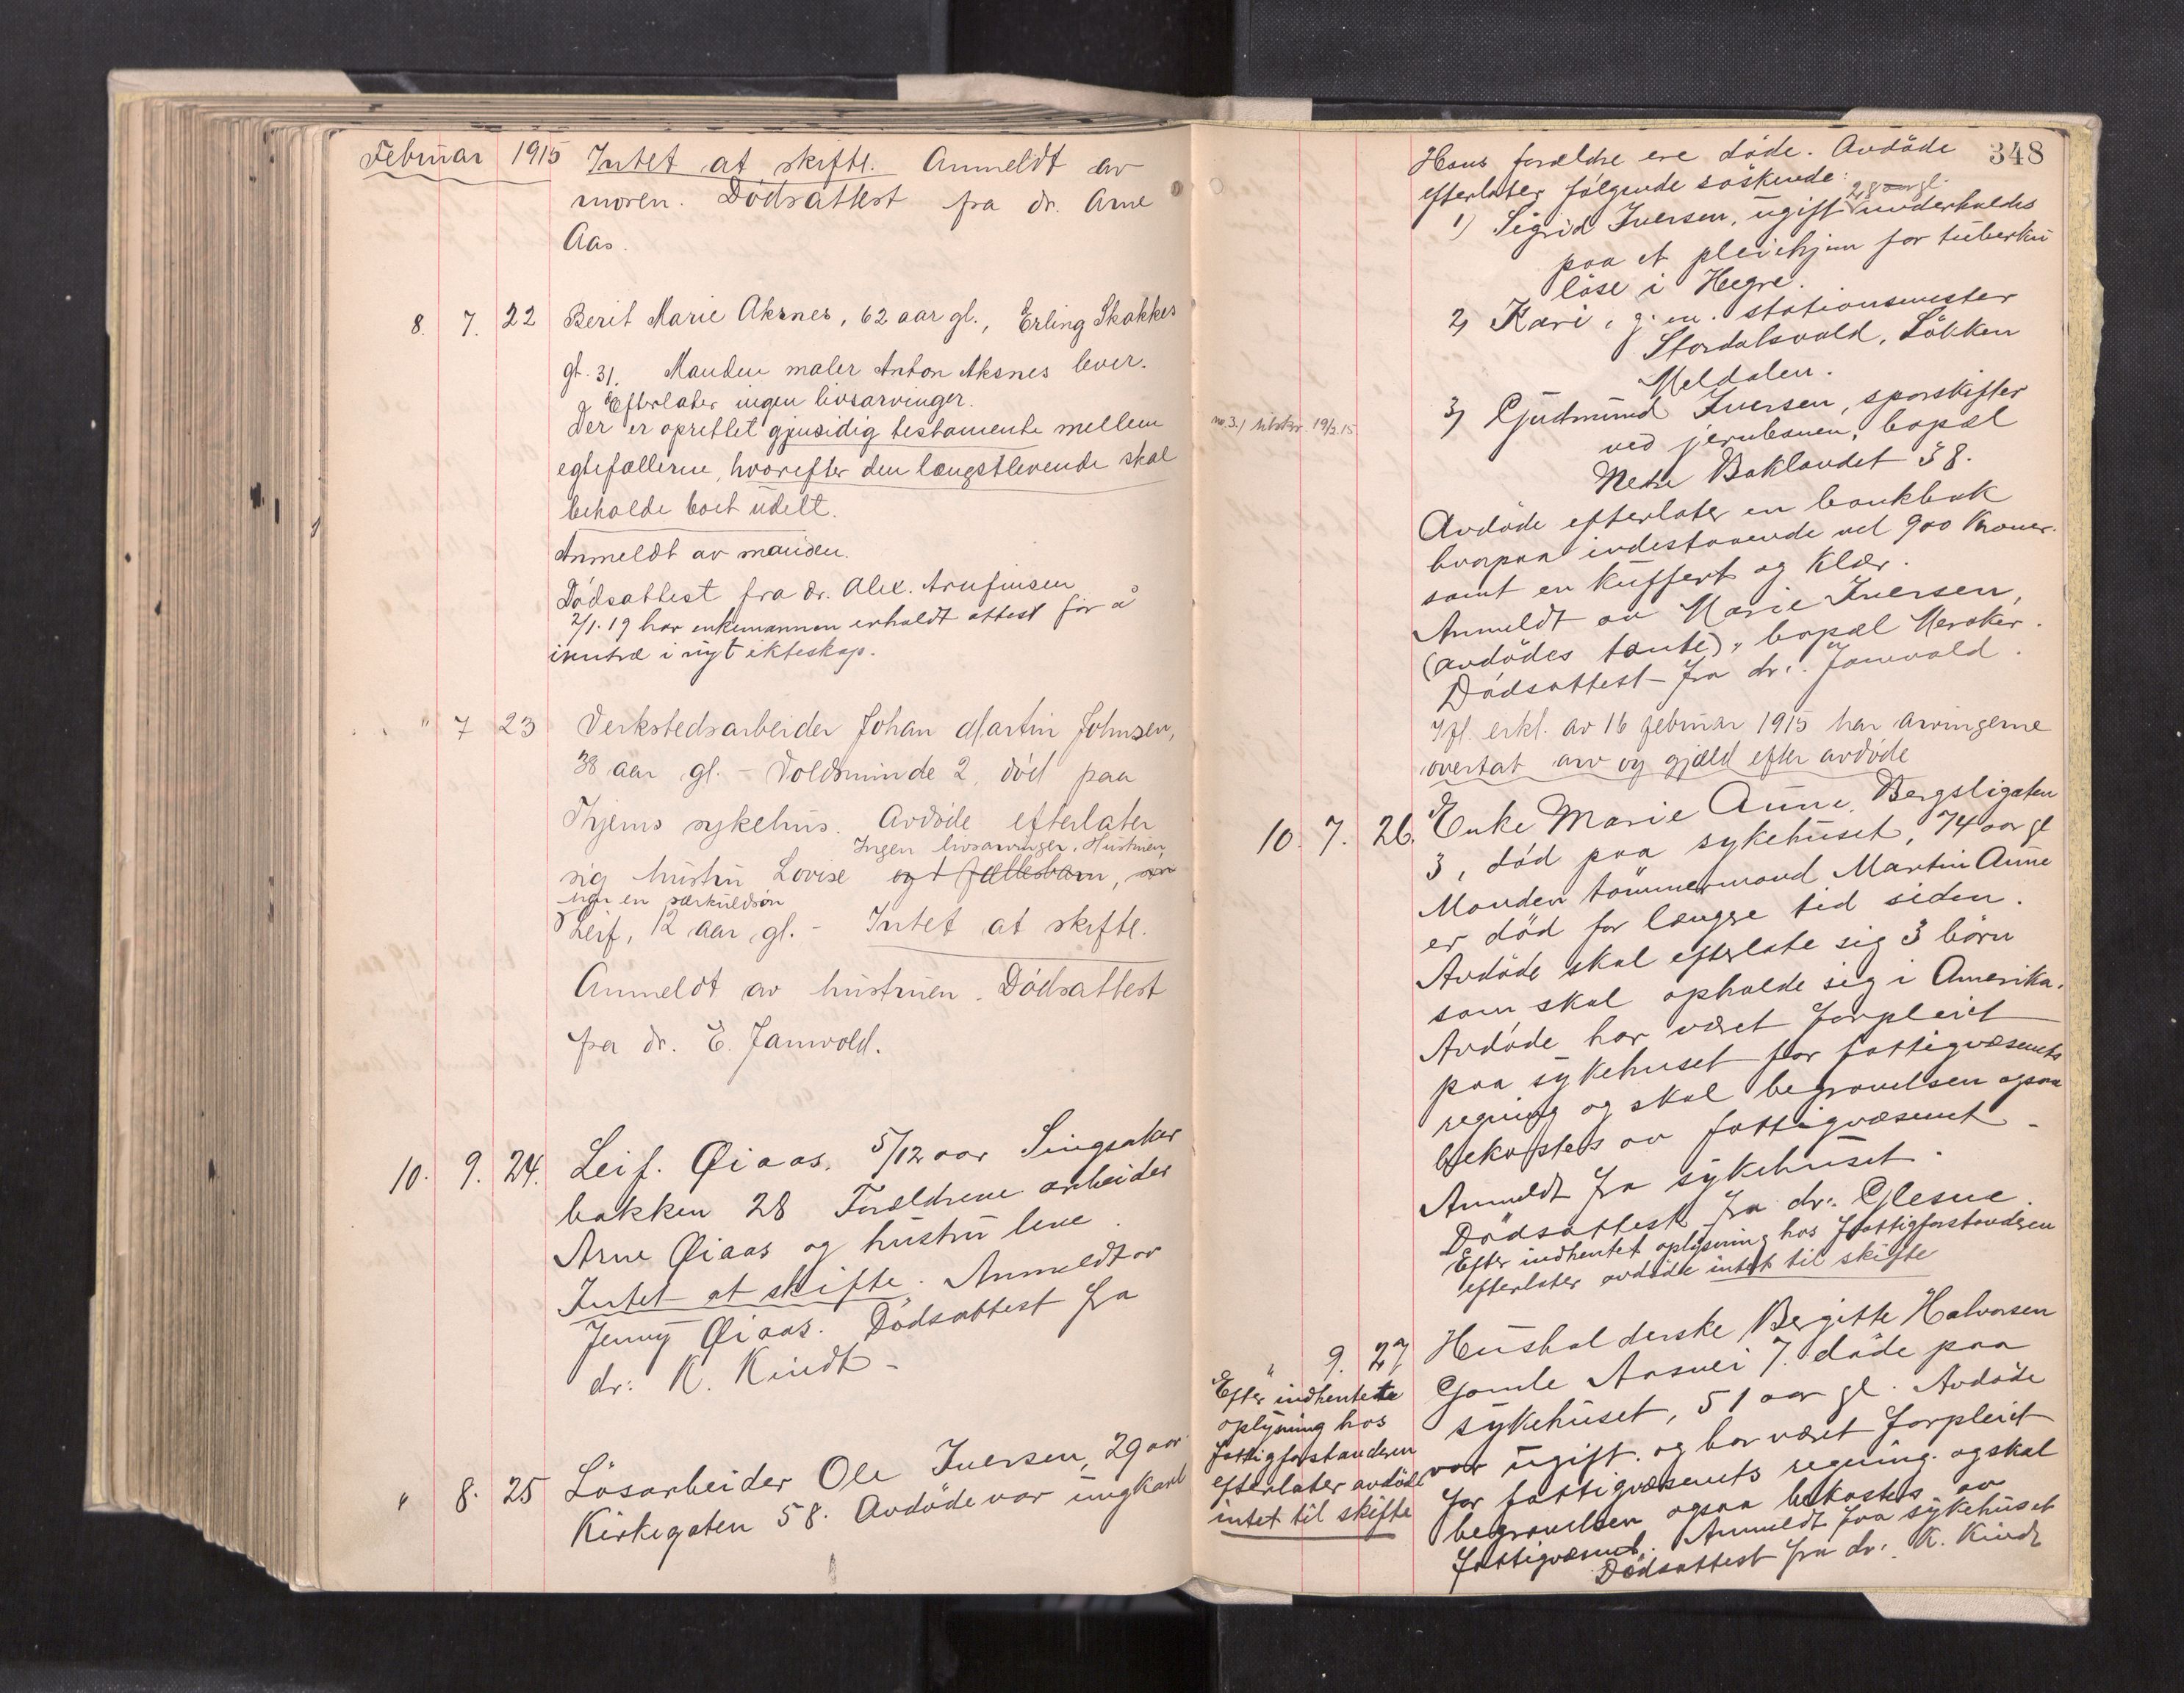 Februar 1915 Intet at skifte. Anmeldt av
moren. Dødsattest fra dr. Arne
Aas.
8. 7. 22 Berit Marie Aksnes, 62 aar gl., Erling Skakkes
gt. 31. Manden maler Anton Aksnes lever.
Efterlater ingen livsarvinger.
Der er oprettet gjensidig testamente mellem
egtefællerne, hvorefter den længstlevende skal
beholde boet udelt.
Anmeldt av manden.
Dødsattest fra dr. Alex. Arnfinsen
2/1.19 har enkemannen erholdt attest for å
inntræ i nyt ekteskap.
" 7 23 Verkstedsarbeider Johan Martin Johnsen,
38 aar gl. - Voldsminde 2, død paa
Thjems sykehus. Avdøde efterlater
Ingen livsarvinger. Hustruen,
sig hustru Lovise og 1 fællesbarn, søn
har en særkuldsøn
Leif, 12 aar gl. - Intet at skifte.
Anmeldt av hustruen. Dødsattest
fra dr. E. Jamvold.
10. 9. 24. Leif. Øiaas, 5/12 aar Singsaker
bakken 28 Forældrene arbeider
Arne Øiaas og hustru leve.
Intet at skifte. Anmeldt av
Jenny Øiaas. Dødsattest fra
dr: K. Kindt -
" 8. 25 Løsarbeider Ole Iversen, 29 aar
Kirkegaten 58. Avdøde var ungkarl
348
Hans forældre ere døde. Avdøde
efterlater følgende søskende:
28 aar gl.
1) Sigrid Iversen, ugift underholdes
paa et pleiehjem for tuberku
løse i Hegre.
2) Kari, g. m. stationsmester
Stordalsvold, Løkken
Meldalen.
3) Gudmund Iversen, sporskifter
ved jernbanen, bopæl
Nedre Baklandet 38.
no. 3.) utskr. 19/2.15
Avdøde efterlater en bankbok
hvorpaa indestaaende vel 900 Kroner.
samt en kuffert og klær.
Anmeldt av Marie Iversen,
(avdødes tante), bopæl Meraker.
Dødsattest fra dr: Jamvold.
Ifl. erkl. av 16 februar 1915 har arvingerne
overtat arv og gjæld efter avdøde
10. 7. 26. Enke Marie Aune, Bergsligaten
3, død paa sykehuset, 74 aar gl
Manden tømmermand Martin Aune
er død for længre tid siden.
Avdøde skal efterlate sig 3 børn
som skal opholde sig i Amerika.
Avdøde har været forpleiet
paa sykehuset for fattigvæsenets
regning og skal begravelsen ogsaa
bekostes av fattigvæsenet -
Anmeldt fra sykehuset.
Dødsattest fra dr: Glesne.
Efter indhentet oplysning hos fattigforstanderen
efterlater avdøde intet til skifte
" 9. 27 Husholderske Bergitte Halvorsen
Gamle Aasvei 7. døde paa
sykehuset, 51 aar gl. Avdøde
var ugift. og har været forpleiet
for fattigvæsenets regning. og skal
begravelsen ogsaa bekostes av
fattigvæsenet. Anmeldt fra sykehuset
Dødsattest fra dr: K. Kindt
Efter indhentede
oplysning hos
fattigforstanderen
efterlater avdøde
intet til skifte